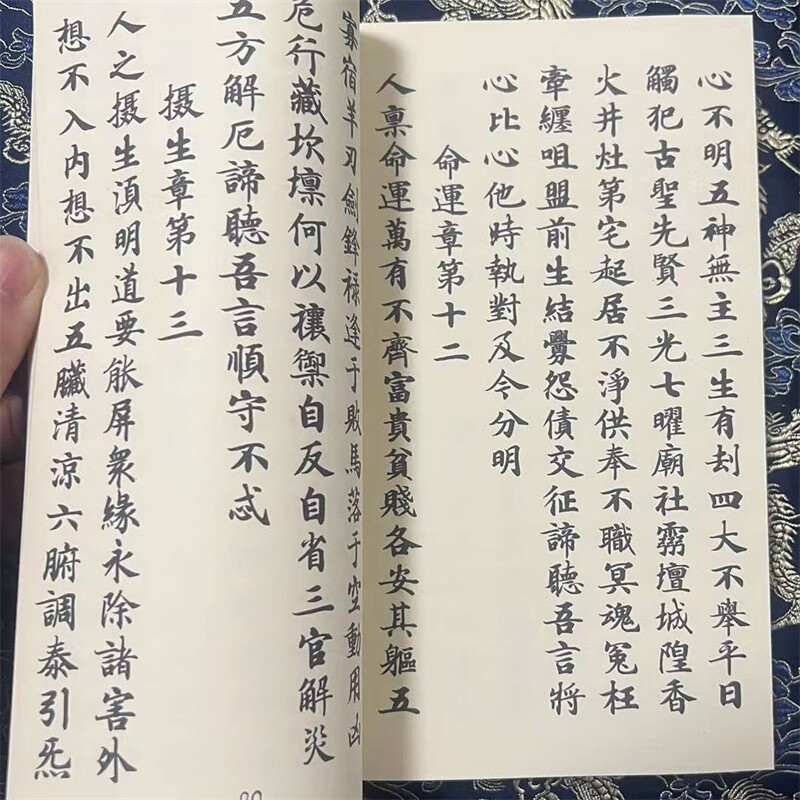 心不明五神無主三生有刦四大不舉平日
觸犯古聖先賢三光七曜廟社霛壇城隍香
火井灶第宅起居不淨供奉不職冥魂冤枉
牽纏咀盟前生結釁怨債交征諦聽吾言將
心比心他時執對及今分明
命運章第十二
人禀命運萬有不齊富貴貧賤各安其軀五
寡宿羊刃劍鋒祿逢于敗馬落于空動用凶
危行藏坎壈何以禳禦自反自省三官解災
五方解厄諦聽吾言順守不忒
摄生章第十三
人之摄生湏明道要能屏衆緣永除諸害外
想不入内想不出五臟清涼六腑調泰引炁